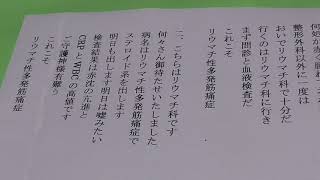 整形外科以外に一度は
おいでリウマチ科で十分だ
行くのはリウマチ科に行き
まず問診と血液検査だ
これこそ
リウマチ性多発筋痛症
二、こちらはリウマチ科です
何々さん御待たせいたしました
病名はリウマチ性多発筋痛症で
ステロイド系を出します
明日も出します明日は嘘みたい
検査結果は赤沈の亢進と
CRPとWBCの高値です
ご守護神様有難う
これこそ
リウマチ性多発筋痛症